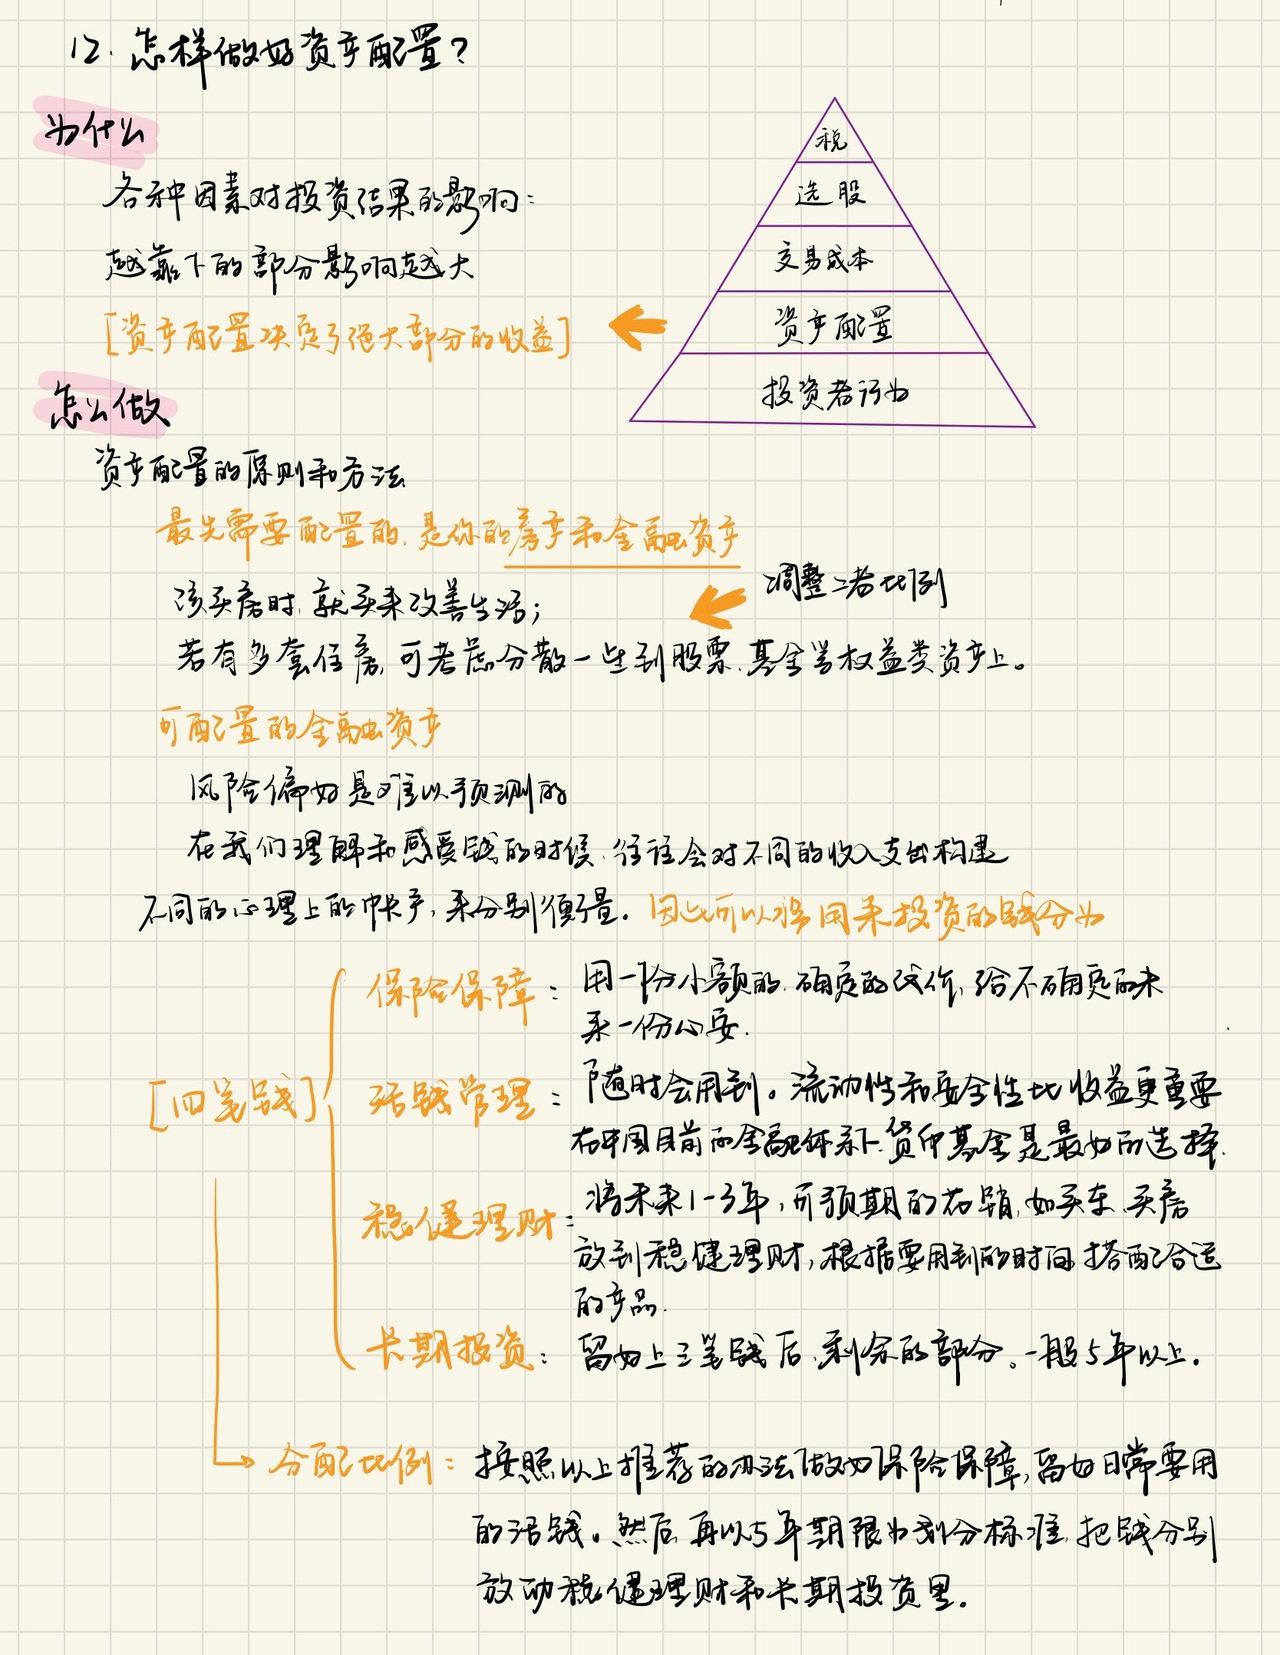 12. 怎样做好资产配置?
为什么
各种因素对投资结果的影响:
越靠下的部分影响越大
[资产配置决定了绝大部分的收益]
税
选股
交易成本
资产配置
投资者行为
怎么做
资产配置的原则和方法
最先需要配置的,是你的房产和金融资产
该买房时,就买来改善生活;
调整二者比例
若有多套住房,可考虑分散一些到股票、基金当权益类资产上。
可配置的金融资产
风险偏好是难以预测的
在我们理解和感受钱的时候,往往会对不同的收入支出构建
不同的心理上的帐户,来分别衡量。因此可以将用来投资的钱分为
[四笔钱]
保险保障:用一份小额的、确定的代价,给不确定的未
来一份心安.
活钱管理:随时会用到。流动性和安全性比收益更重要
在中国目前的金融体系下,货币基金是最好的选择.
稳健理财:将未来1-3年,可预期的花销,如买车、买房
放到稳健理财,根据要用到的时间,搭配合适
的产品.
长期投资:留好上三笔钱后,剩余的部分。一般5年以上.
分配比例:按照以上推荐的办法做好保险保障,留好日常要用
的活钱。然后,再以5年期限为划分标准,把钱分别
放动稳健理财和长期投资里。